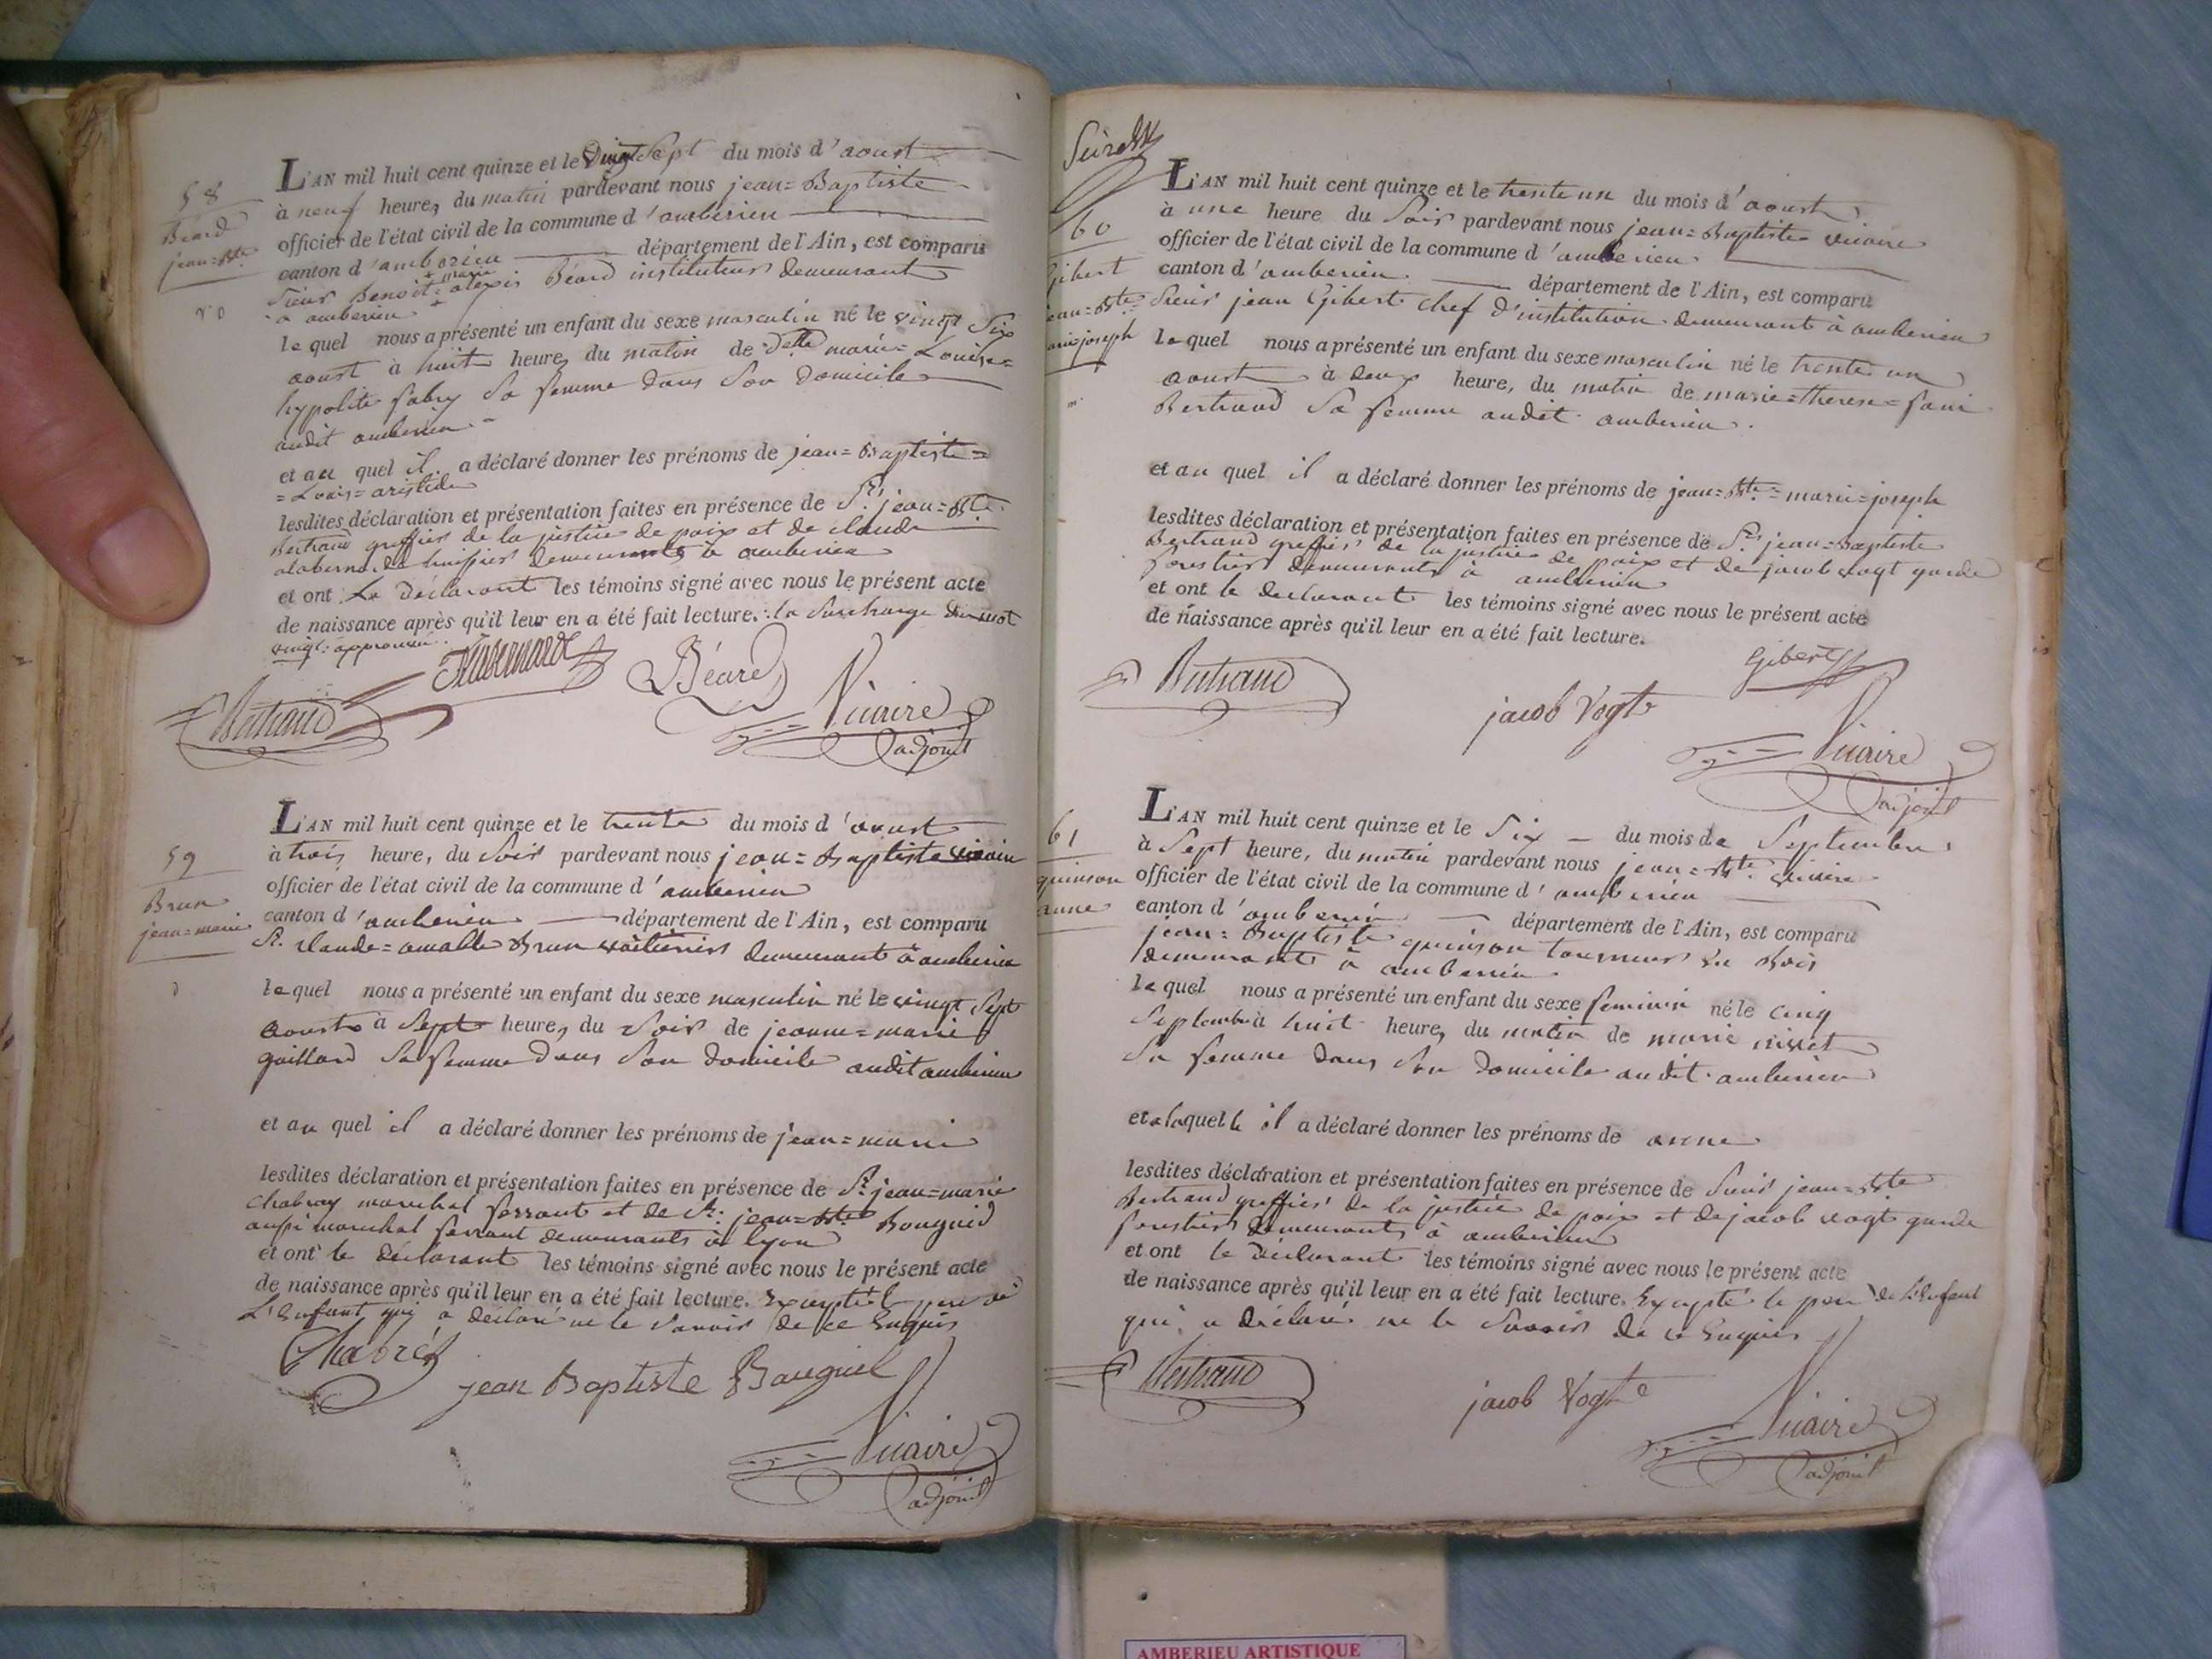 58
Béard
jean=Bte
L'AN mil huit cent quinze et le Vingt Sept du mois d'aoust
à neuf heures du matin pardevant nous jean=Baptiste
officier de l'état civil de la commune d'amberieu
canton d'amberieu département de l'Ain, est comparu
Sieur Benoit=alexis Béard instituteur demeurant
+ marie +
à amberieu
lequel nous a présenté un enfant du sexe masculin né le vingt Six
aoust à huit heures du matin de delle marie=Louise=
hypolite fabry Sa femme dans Son domicile
audit amberieu
et au quel il a déclaré donner les prénoms de jean=Baptiste=
=Louis=aristide
lesdites déclaration et présentation faites en présence de Sr. jean=Bte.
Bertrand greffier de la justice de paix et de claude
huissier demeurants à amberieu
et ont Le Déclarant les témoins signé avec nous le présent acte
de naissance après qu'il leur en a été fait lecture. la Surcharge du mot
vingt approuvée.
Bertrand
Béard
Vicaire
adjoint
59
Brun
jean=marie
L'AN mil huit cent quinze et le trente du mois d'aoust
à trois heure, du Soir pardevant nous jean=Baptiste vicaire
officier de l'état civil de la commune d'amberieu
canton d'amberieu département de l'Ain, est comparu
Sr. claude=amable Brun voiturier demeurant à amberieu
lequel nous a présenté un enfant du sexe masculin né le vingt Sept
aoust à Sept heures du Soir de jeanne=marie
guillard Sa femme dans Son domicile audit amberieu
et au quel il a déclaré donner les prénoms de jean=marie
lesdites déclaration et présentation faites en présence de Sr. jean=marie
marechal ferrant et de Sr. jean=Bte
aussi marechal ferrant demeurants à lyon
et ont le déclarant les témoins signé avec nous le présent acte
de naissance après qu'il leur en a été fait lecture. Excepté le pere de
L'Enfant qui a déclaré ne le Savoir de ce Enquis
jean Baptiste
Vicaire
adjoint
60
Gibert
jean=Bte=
marie joseph
L'AN mil huit cent quinze et le trente un du mois d'aoust
à une heure du Soir pardevant nous jean=Baptiste vicaire
officier de l'état civil de la commune d'amberieu
canton d'amberieu. département de l'Ain, est comparu
Sieur jean Gibert chef d'institution demeurant à amberieu
lequel nous a présenté un enfant du sexe masculin né le trente un
aoust à deux heure, du matin de marie=therese=
Bertrand Sa femme audit amberieu.
et au quel il a déclaré donner les prénoms de jean=Bte=marie=joseph
lesdites déclaration et présentation faites en présence de Sr. jean=Baptiste
Bertrand greffier de la justice de paix et de jacob vogt garde
forestier demeurants à amberieu
et ont le declarant les témoins signé avec nous le présent acte
de naissance après qu'il leur en a été fait lecture.
Bertrand
jacob Vogt
Gibert
Vicaire
adjoint
61
quinson
anne
L'AN mil huit cent quinze et le Six du mois de Septembre
à Sept heure, du matin pardevant nous jean=Bte. vicaire
officier de l'état civil de la commune d'amberieu
canton d'amberieu département de l'Ain, est comparu
jean=Baptiste quinson tourneur en Bois
demeurant à amberieu
lequel nous a présenté un enfant du sexe feminin né le cinq
Septembre à huit heures du matin de marie
Sa femme dans Son domicile audit amberieu
et a laquelle il a déclaré donner les prénoms de anne
lesdites déclaration et présentation faites en présence de Sieur jean=Bte
Bertrand greffier de la justice de paix et de jacob vogt garde
forestier demeurants à amberieu
et ont le déclarant les témoins signé avec nous le présent acte
de naissance après qu'il leur en a été fait lecture. Excepté le pere de L'Enfant
qui a déclaré ne le Savoir de ce Enquis
Bertrand
jacob Vogt
Vicaire
adjoint
AMBERIEU ARTISTIQUE